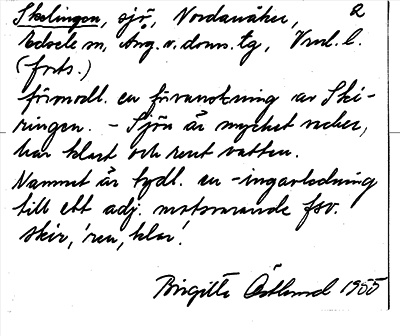 Skelingen, sjö, Nordanåker, 2
Edsele sn, Ång. v. doms. tg, Vnl. l.
(forts.)
förmodl. en förvanskning av Ski-
ringen. – Sjön är mycket vacker,
har klart och rent vatten.
Namnet är tydl. en -ingavledning
till ett adj. motsvarande fsv.
skir, 'ren, klar'.
Birgitta Östlund 1955